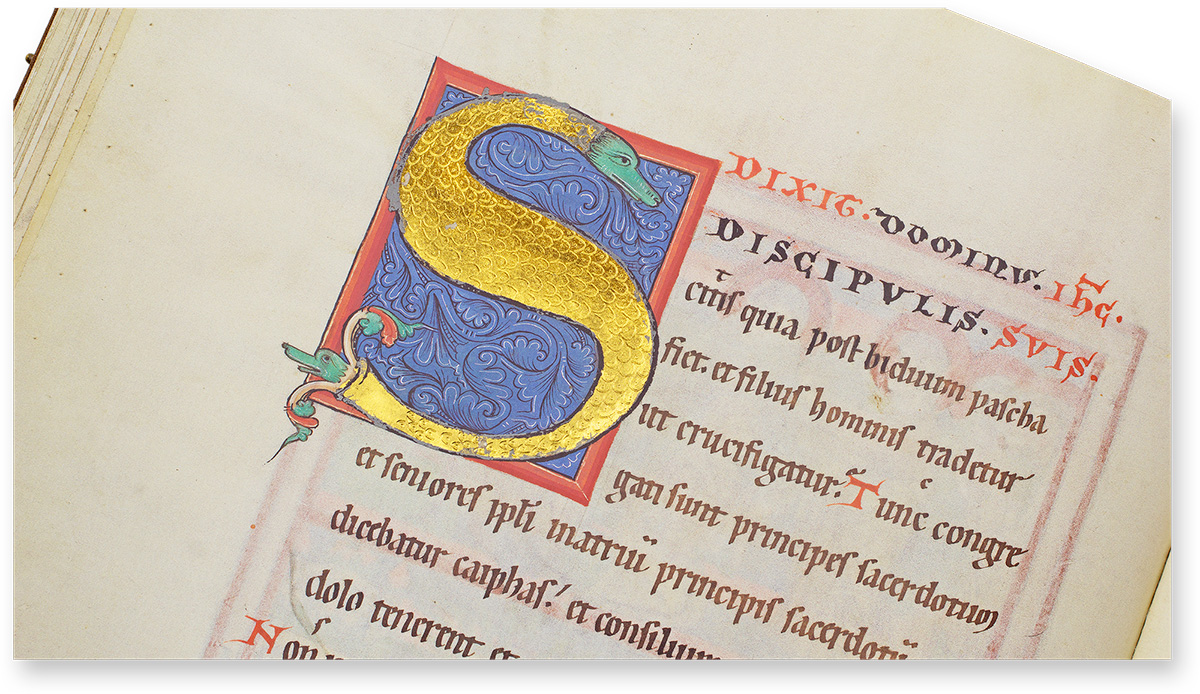 S
DIXIT. DOMINUS. IHC.
DISCIPVLIS. SVIS.
citis quia post biduum pascha
fiet. et filius hominis tradetur
ut crucifigatur. Tunc congre
gati sunt principes sacerdotum
et seniores ppłi in atriū principis sacerdotū
dicebatur caiphas. et consilium
dolo tenerent et
Non